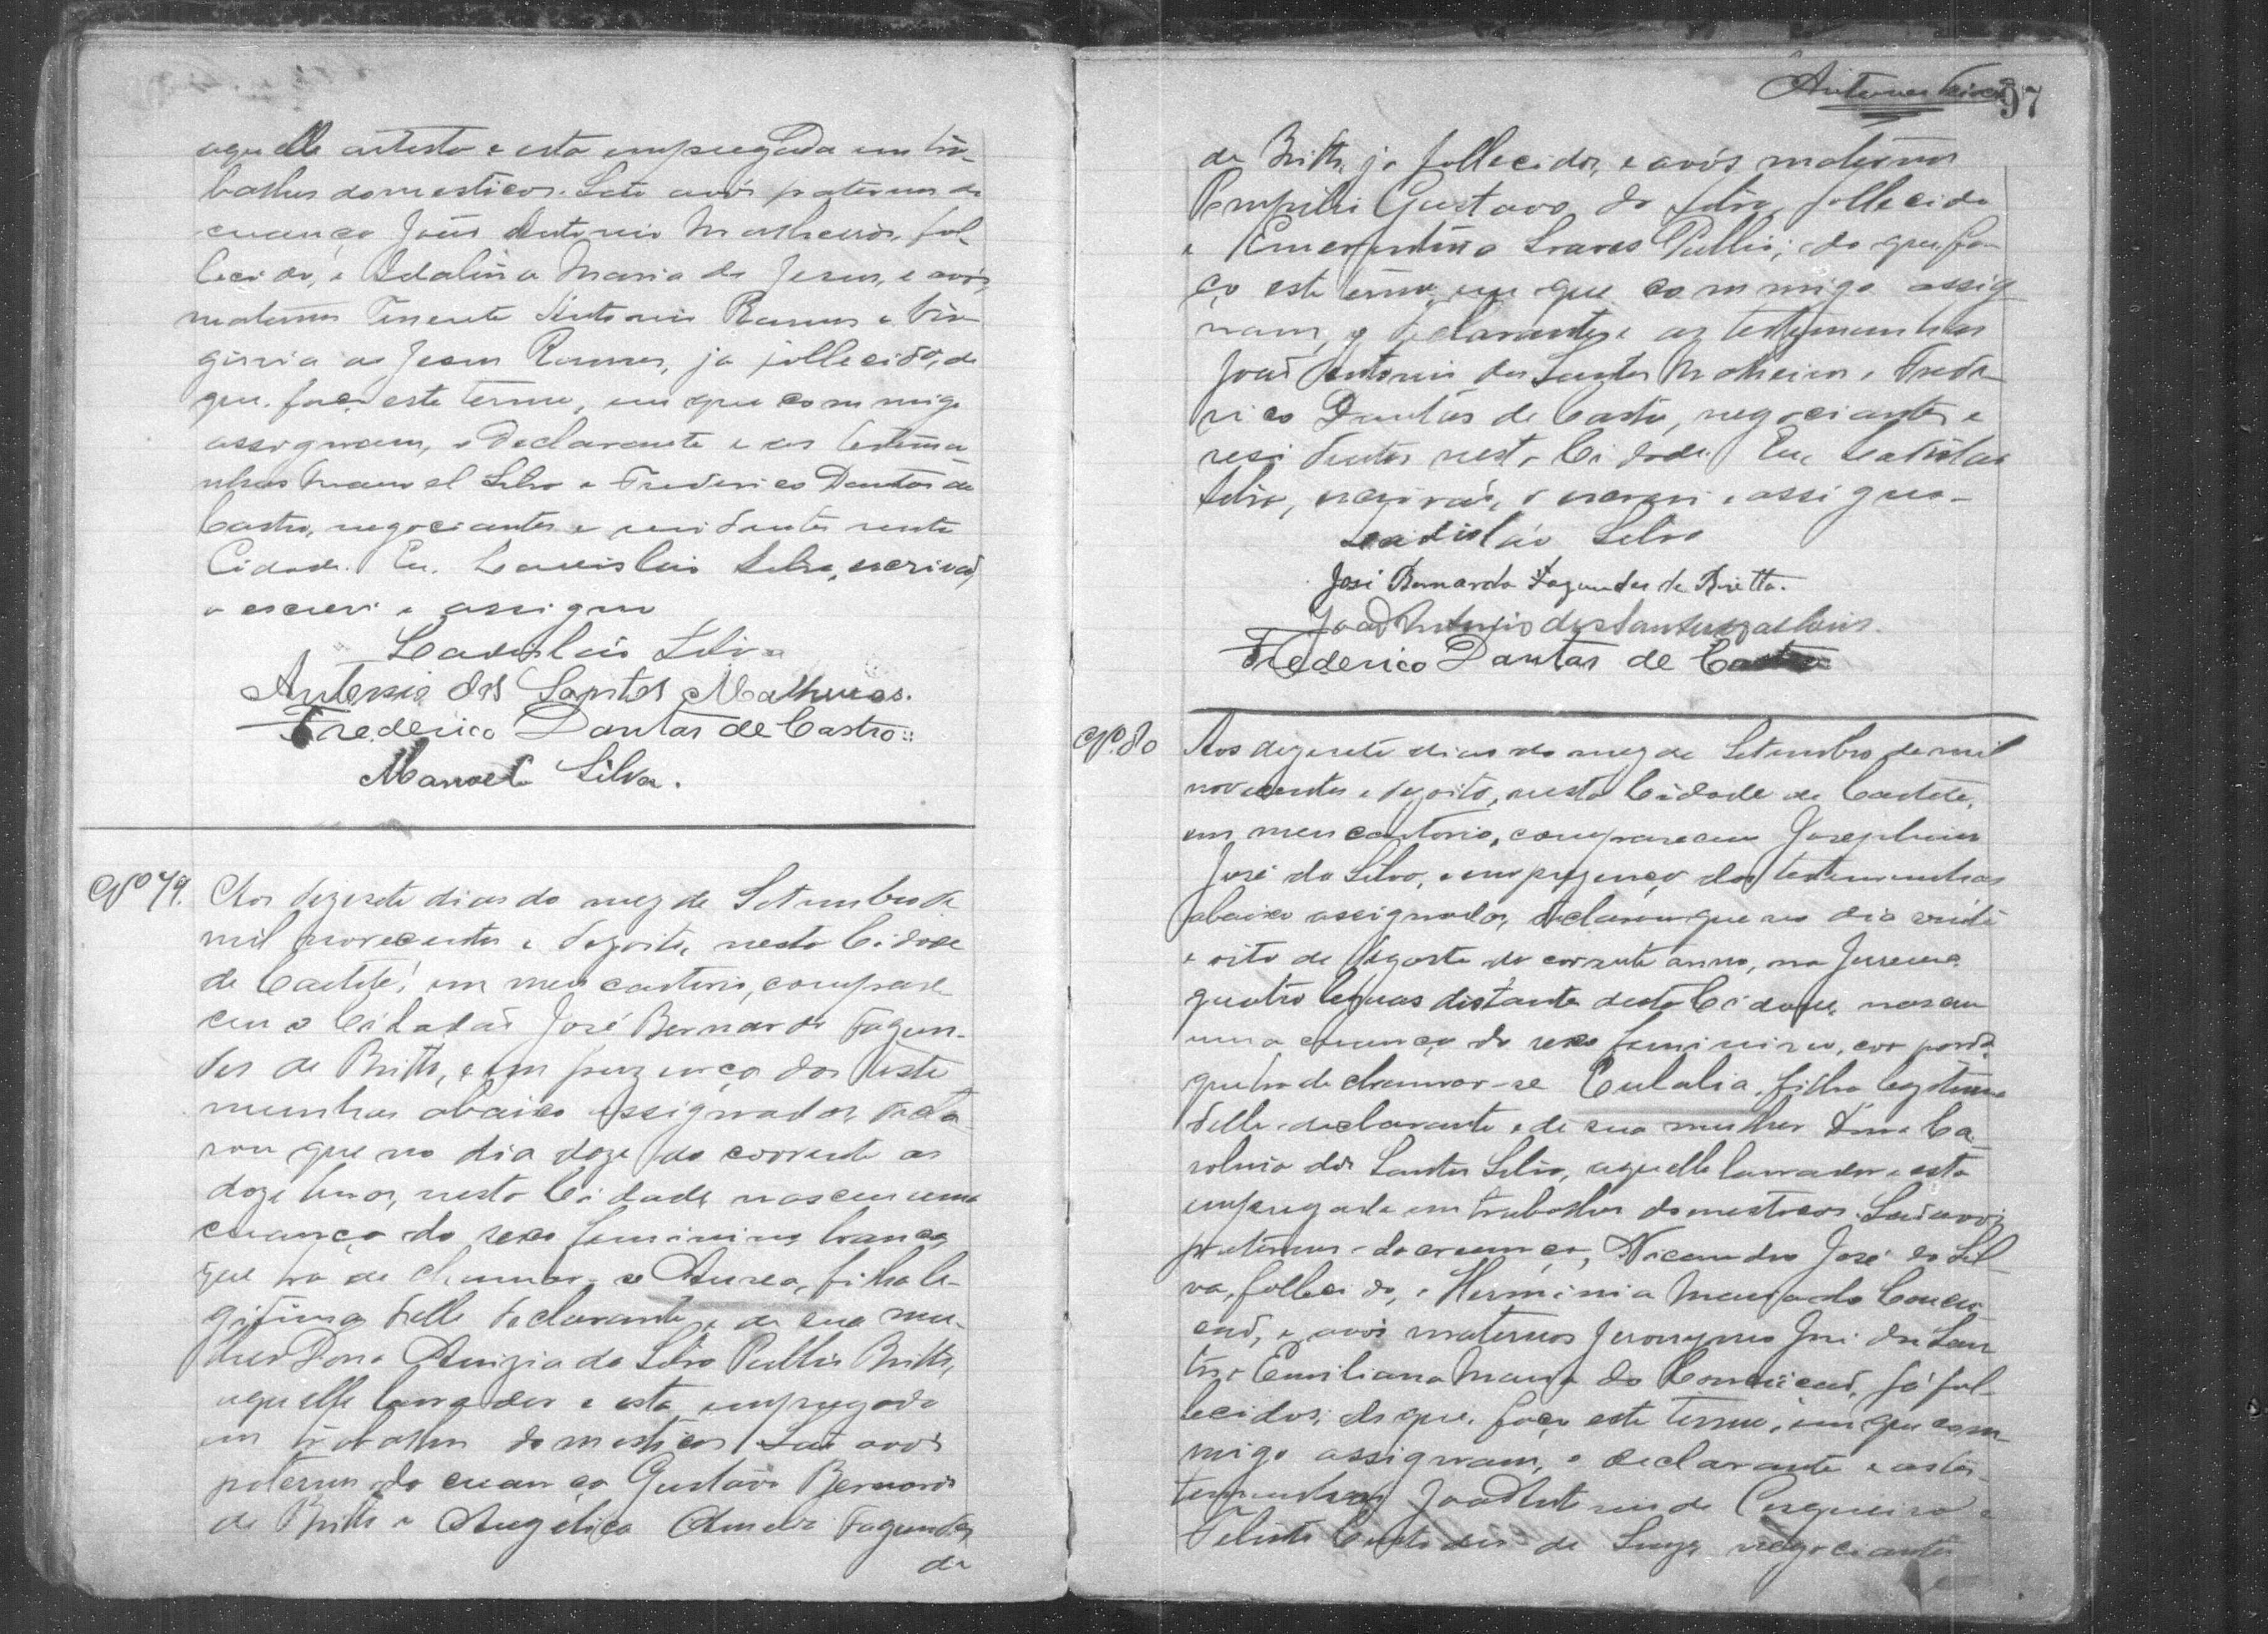 aquelle artista e esta empregada em tra-
balhos domesticos. São avós paternos da
creança João Antonio Matheus, fal-
lecido, e Idalina Maria de Jesus, e avós
maternos Tenente Antonio Ramos e Vir-
ginia de Jesus Ramos, ja fallecido, do
que faço este termo, em que commigo
assignam, o declarante e as testemu
nhas Manoel Silva e Frederico Dantas de
Castro, negociantes e residentes nesta
Cidade. Eu, Ladisláo Silva, escrivão,
o escrevi e assigno
Ladisláo Silva
Antonio dos Santos Matheus.
Frederico Dantas de Castro
Manoel Silva.
Nº 79. Aos dezesete dias do mez de Setembro de
mil novecentos e dezoito, nesta Cidade
de Caeteté, em meu cartorio, compare-
ceu o Cidadão José Bernardo Fagun-
des de Britto, e em prezença das teste
munhas abaixo assignadas, decla-
rou que no dia doze do corrente as
doze horas, nesta Cidade, nasceu uma
creança do sexo feminino, branca,
que ha de chamar-se Aurea, filha le-
gitima delle declarante, e de sua mu-
lher Dona Anizia da Silva Publio Britto,
aquelle lavrador e esta empregada
em trabalhos domesticos. São avós
paternos da creança Gustavo Bernardo
de Britto e Angelica Amelia Fagundes
de
97
de Britto, ja fallecidos, e avós maternos
Pompilio Gustavo da Silva, fallecido
e Emerentina Soares Publio; do que fa-
ço este termo, em que commigo assig
nam, o declarante e as testemunhas
João Antonio dos Santos Matheus e Frede-
rico Dantas de Castro, negociantes e
residentes nesta Cidade. Eu, Ladisláo
Silva, escrivão, o escrevi e assigno-
Ladisláo Silva
José Bernardo Fagundes de Britto.
João Antonio dos Santos Matheus.
Frederico Dantas de Castro
Nº 80 Aos dezesete dias do mez de Setembro de mil
novecentos e dezoito, nesta Cidade de Caeteté,
em meu cartorio, compareceu Josephino
José da Silva, e em prezença das testemunhas
abaixo assignadas, declarou que no dia vinte
e oito de Agosto do corrente anno, na Jurema
quatro leguas distante desta Cidade, nasceu
uma creança do sexo feminino, cor parda
que ha de chamar-se Eulalia, filha legitima
delle declarante e de sua mulher Dona Ca-
rolina dos Santos Silva, aquelle lavrador e esta
empregada em trabalhos domesticos. São avós
paternos da creança, Nicandro José da Sil
va, fallecido, e Herminia Maria da Concei
ção, e avós maternos Jeronymo José dos San
tos e Emiliana Maria da Conceição, já fal-
lecidos; do que, faço este termo, em que com-
migo assignam, o declarante e as tes-
temunhas João Antonio de Cerqueira e
Custodio de Souza negociantes